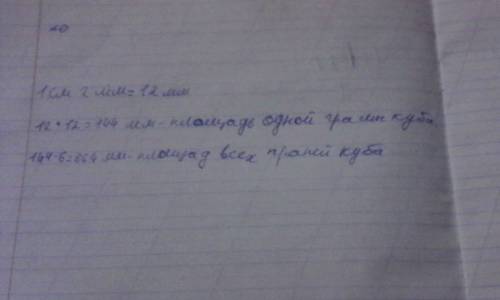 1 см 2 мм = 12 мм
12•12=144 мм - площадь одной грани куба.
144•6=864 мм - площад всех граней куба